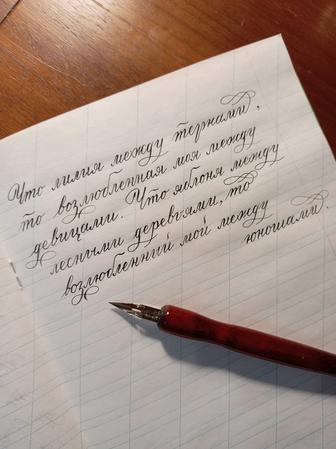 Что лилия между тернами,
то возлюбленная моя между
девицами. Что яблоня между
лесными деревьями, то
возлюбленный мой между
юношами.